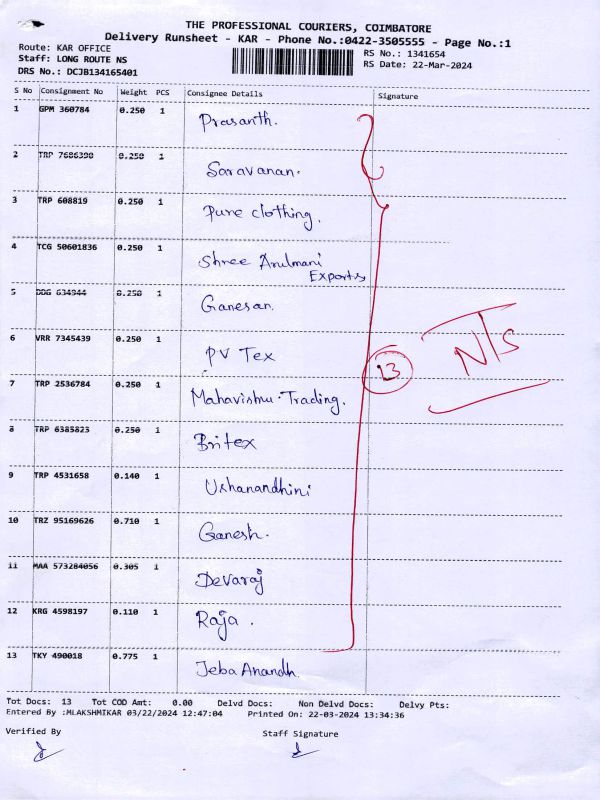 THE PROFESSIONAL COURIERS, COIMBATORE
Delivery Runsheet - KAR - Phone No.:0422-3505555 - Page No.:1
Route: KAR OFFICE RS No.: 1341654
Staff: LONG ROUTE NS RS Date: 22-Mar-2024
DRS No.: DCJB134165401
S No Consignment No Weight PCS Consignee Details Signature
1 GPM 360784 0.250 1 Prasanth.
2 TRP 7686390 0.250 1 Saravanan.
3 TRP 608819 0.250 1 Pure clothing.
4 TCG 50601836 0.250 1 Shree Arulmani
Exports
5 DDG 634944 0.250 1 Ganesan.
6 VRR 7345439 0.250 1 PV Tex
13
N/S
7 TRP 2536784 0.250 1 Mahavishnu Trading.
8 TRP 6385823 0.250 1 Britex
9 TRP 4531658 0.140 1 Ushanandhini
10 TRZ 95169626 0.710 1 Ganesh.
11 MAA 573284056 0.305 1 Devaraj
12 KRG 4598197 0.110 1 Raja.
13 TKY 490018 0.775 1 Jeba Anandh.
Tot Docs: 13 Tot COD Amt: 0.00 Delvd Docs: Non Delvd Docs: Delvy Pts:
Entered By :MLAKSHMIKAR 03/22/2024 12:47:04 Printed On: 22-03-2024 13:34:36
Verified By Staff Signature